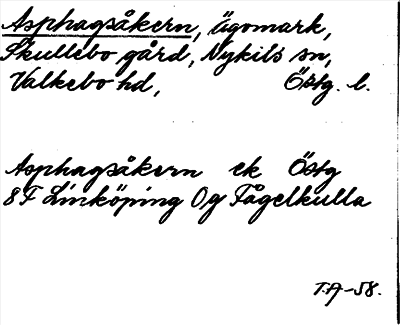 Asphagsåkern, Ägomark,
Skullebo gård, Nykils sn,
Valkebo hd, Östg. l.
Asphagsåkern ek Östg
8F Linköping Og Fågelkulla
T.A-58.